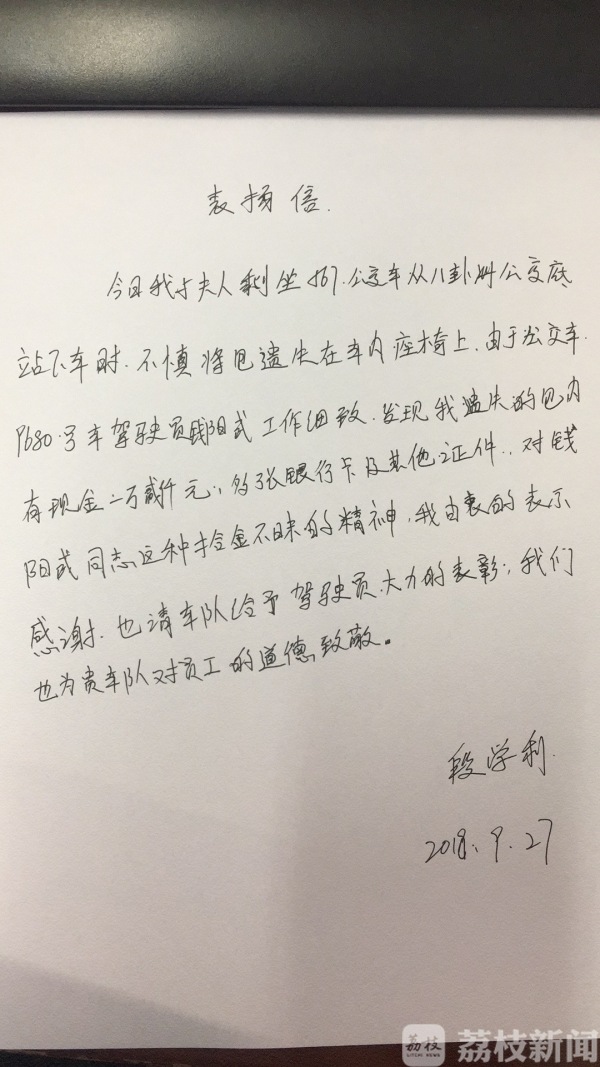 表扬信.
今日我与夫人乘坐567.公交车从八卦洲公交底
站下车时.不慎将包遗失在车内座椅上.由于公交车
9680.号车驾驶员钱阳武工作细致.发现我遗失的包内
有现金二万贰仟元,多张银行卡及其他证件.对钱
阳武同志这种拾金不昧的精神,我由衷的表示
感谢.也请车队给予驾驶员大力的表彰,我们
也为贵车队对员工的道德致敬。
段学利.
2018.9.27
荔枝
LITCHI NEWS
荔枝新闻